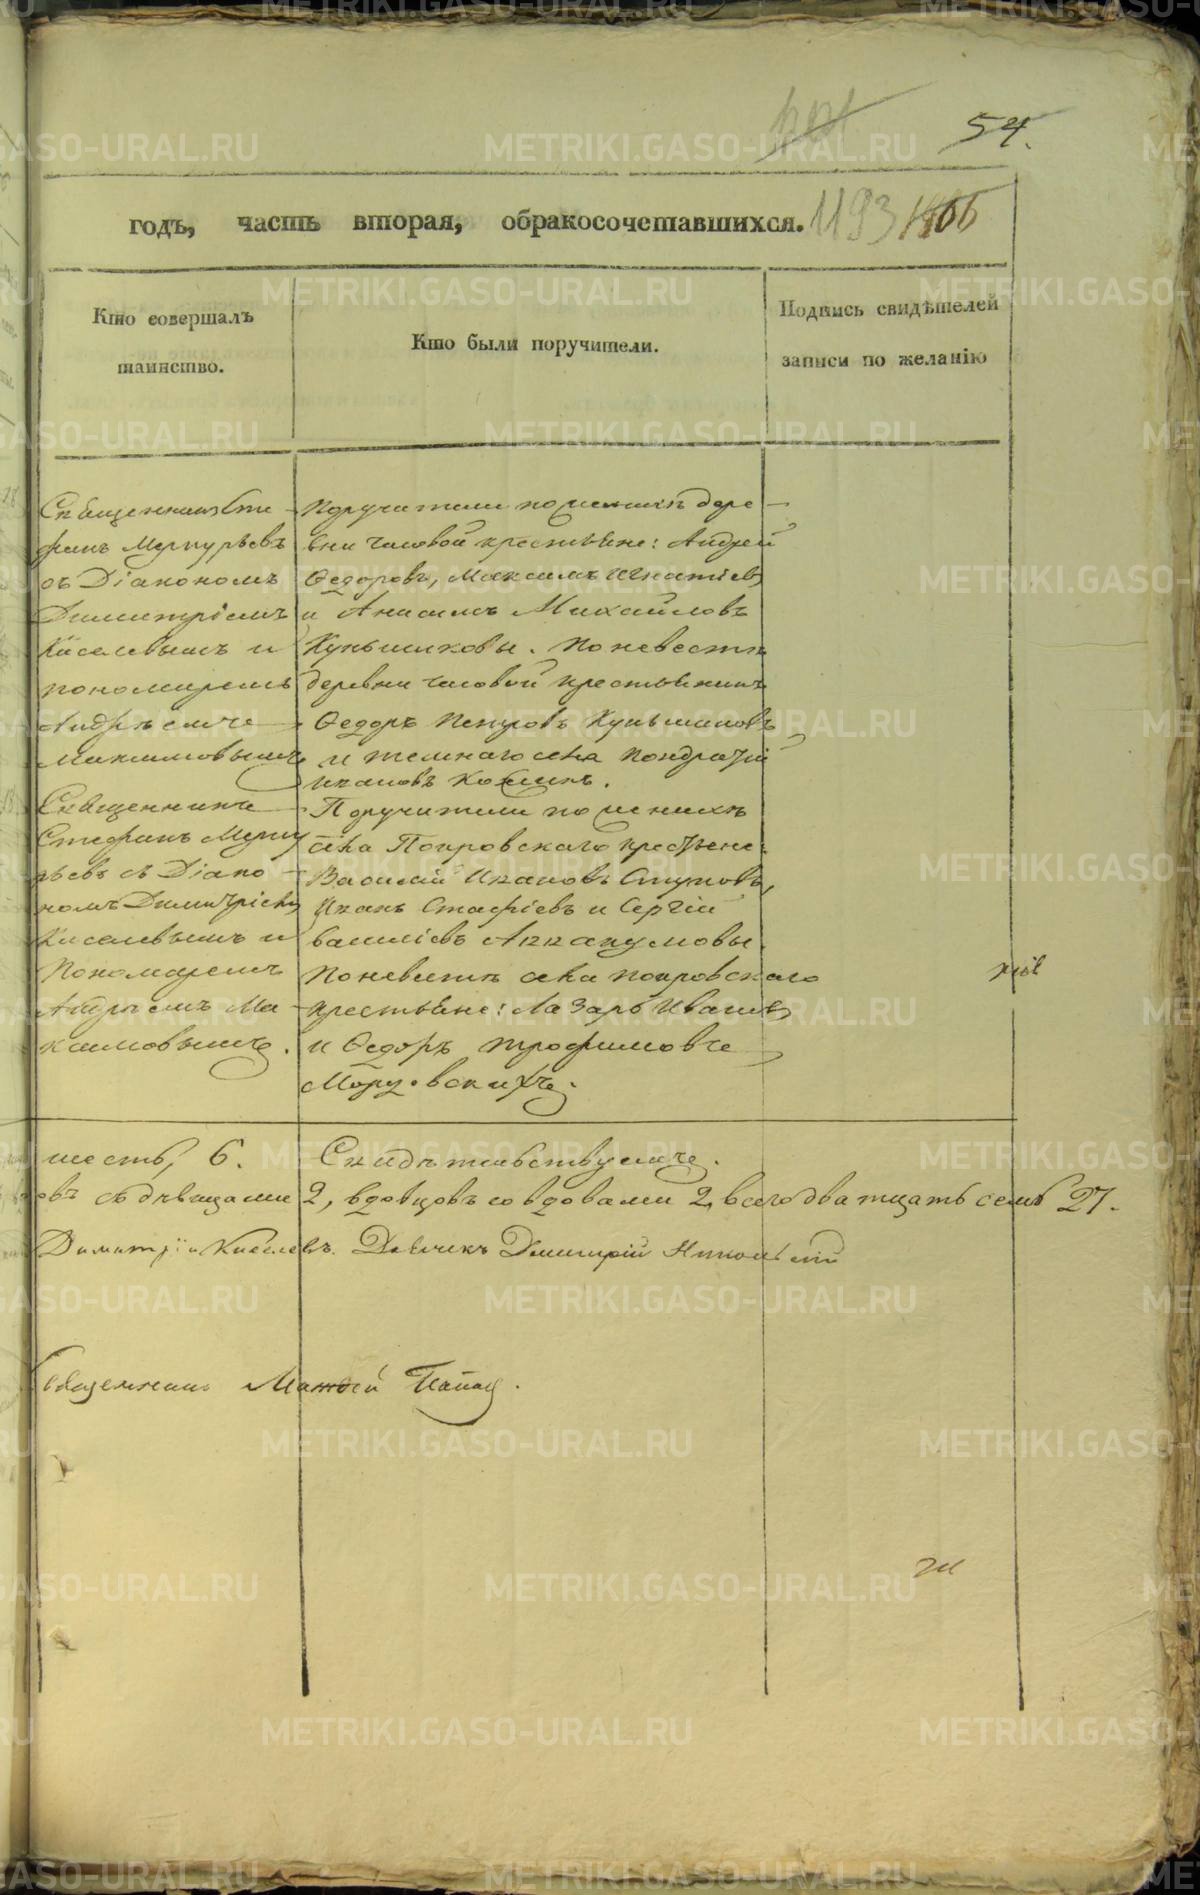 54.
годъ, часть вторая, обракосочетавшихся. 1193
Кто совершалъ таинство.
Кто были поручители.
Подпись свидѣтелей записи по желанію
Священникъ Сте-
фанъ Меркурьевъ
съ Діакономъ
Димитріемъ
Киселевымъ и
пономаремъ
Андрѣемъ
Максимовымъ
Поручители по женихѣ дере-
вни Часовой крестьяне: Андрей
Ѳедоровъ, Максимъ Игнатіевъ
и Анисимъ Михайловъ
Куньщиковы. По невестѣ
деревни Часовой крестьянинъ
Ѳедоръ Петровъ Куньщиковъ
и Темнаго села Кондратій
Ивановъ
Священникъ
Стефанъ Мерку
рьевъ съ Діако-
номъ Димитріемъ
Киселевымъ и
Пономаремъ
Андрѣемъ Ма-
ксимовымъ.
Поручители по женихѣ
села Покровскаго крестьяне:
Василій Ивановъ Ступовъ,
Иванъ Стафіевъ и Сергій
Василіевъ Аввакумовы.
По невестѣ села Покровскаго
крестьяне: Лазарь Иванов
и Ѳедоръ Трофимовъ
шесть, 6. Свидѣтельствуемъ.
овъ съ дѣвицами 2, вдовцовъ со вдовами 2, всего дватцать семь 27.
Димитрій Киселевъ. Дьячекъ Димитрій Никольскій
Священникъ Матѳей Попов.